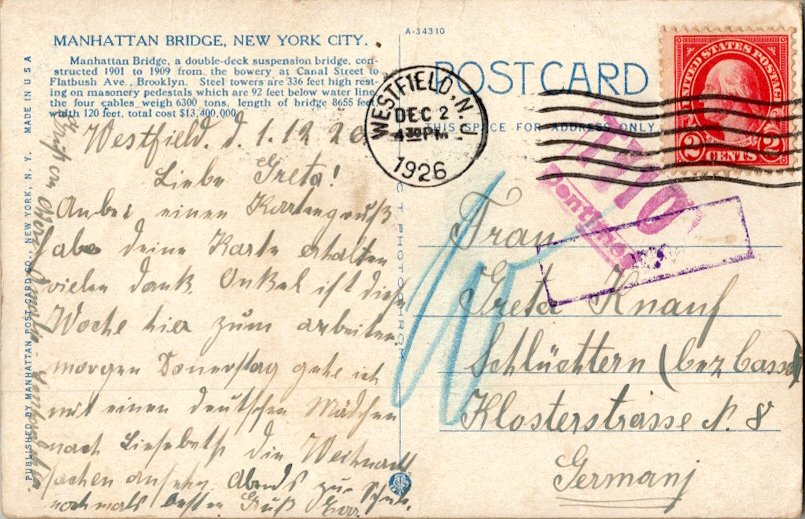 MANHATTAN BRIDGE, NEW YORK CITY.
Manhattan Bridge, a double-deck suspension bridge, con-
structed 1901 to 1909 from the bowery at Canal Street to
Flatbush Ave., Brooklyn. Steel towers are 336 feet high rest-
ing on masonery pedestals which are 92 feet below water line,
the four cables weigh 6300 tons, length of bridge 8655 feet
width 120 feet, total cost $13,400,000.
A-34310
POSTCARD
THIS SPACE FOR ADDRESS ONLY
WESTFIELD, N.J.
DEC 2
4 30 PM
1926
UNITED STATES POSTAGE
2 CENTS 2
Westfield. d. 1. 12
Liebe Greta!
einen Kartengruß
habe deine Karte erhalten
vielen dank. Onkel ist diese
Woche hier zum arbeiten
morgen Donerstag gehe ich
mit einen deutschen Mädchen
nach die Weihnacht
sachen Abends zur
nochmals besten Gruß
Centimes
Frau
Greta Knauf
Schlüchtern (bez Cassel)
Klosterstrasse N. 8
Germany
PUBLISHED BY MANHATTAN POST CARD CO., NEW YORK, N. Y. MADE IN U S A